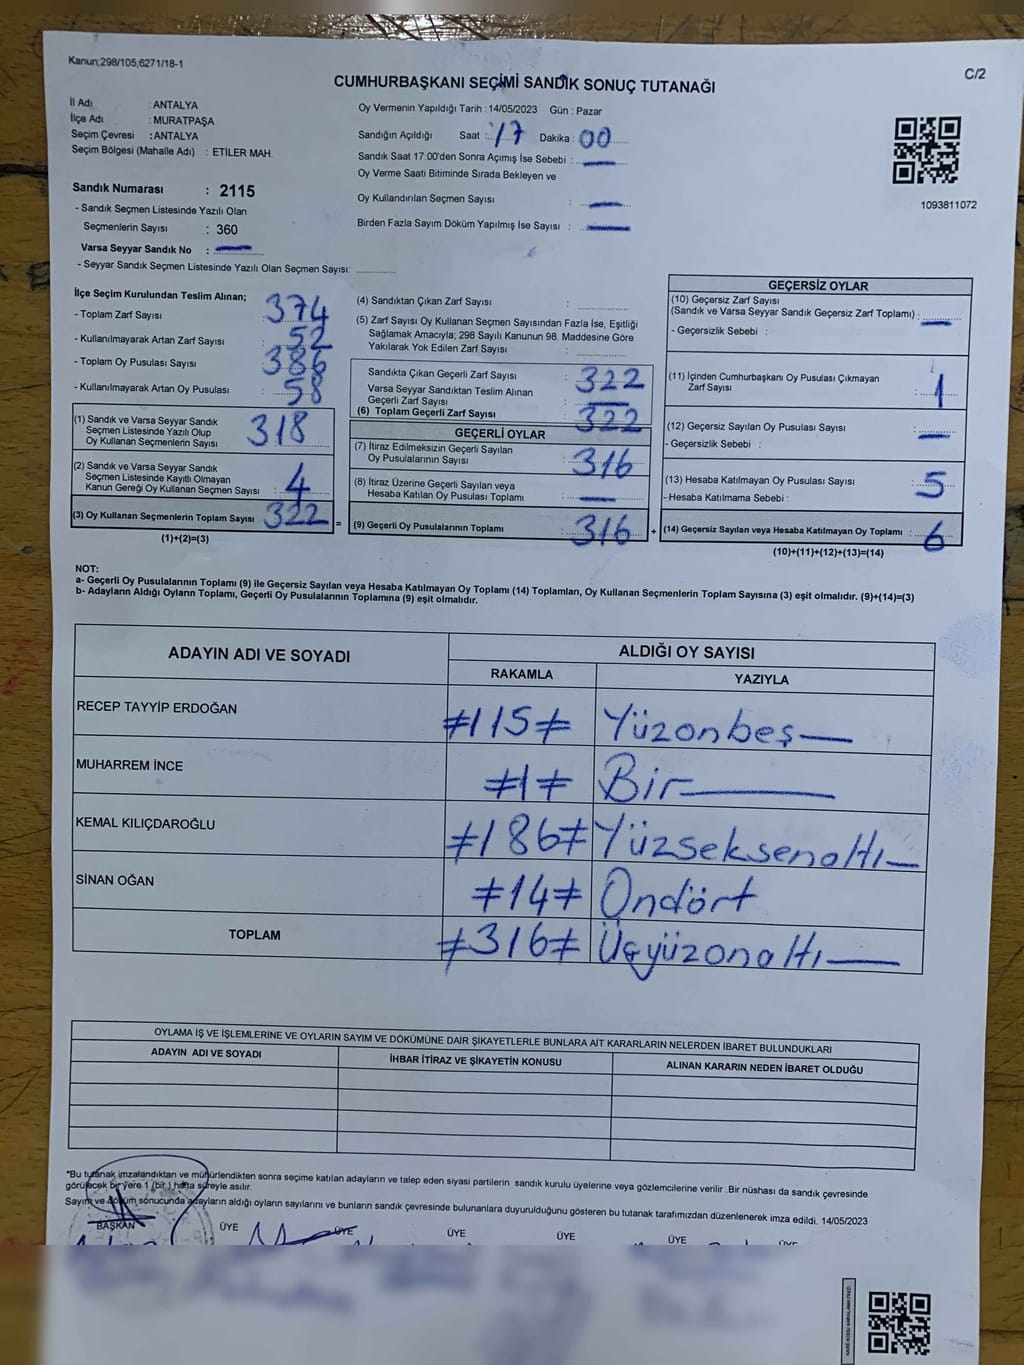 Kanun;298/105;6271/18-1
C/2
CUMHURBAŞKANI SEÇİMİ SANDIK SONUÇ TUTANAĞI
İl Adı : ANTALYA
İlçe Adı : MURATPAŞA
Seçim Çevresi : ANTALYA
Seçim Bölgesi (Mahalle Adı) : ETİLER MAH.
Sandık Numarası : 2115
- Sandık Seçmen Listesinde Yazılı Olan
Seçmenlerin Sayısı : 360
Varsa Seyyar Sandık No : —
- Seyyar Sandık Seçmen Listesinde Yazılı Olan Seçmen Sayısı: ............
Oy Vermenin Yapıldığı Tarih : 14/05/2023 Gün : Pazar
Sandığın Açıldığı Saat : 17 Dakika : 00
Sandık Saat 17:00'den Sonra Açımış İse Sebebi : —
Oy Verme Saati Bitiminde Sırada Bekleyen ve
Oy Kullandırılan Seçmen Sayısı : —
Birden Fazla Sayım Döküm Yapılmış İse Sayısı : —
1093811072
İlçe Seçim Kurulundan Teslim Alınan;
- Toplam Zarf Sayısı : 374
- Kullanılmayarak Artan Zarf Sayısı : 52
- Toplam Oy Pusulası Sayısı : 386
- Kullanılmayarak Artan Oy Pusulası : 58
(1) Sandık ve Varsa Seyyar Sandık
Seçmen Listesinde Yazılı Olup
Oy Kullanan Seçmenlerin Sayısı : 318
(2) Sandık ve Varsa Seyyar Sandık
Seçmen Listesinde Kayıtlı Olmayan
Kanun Gereği Oy Kullanan Seçmen Sayısı : 4
(3) Oy Kullanan Seçmenlerin Toplam Sayısı : 322 =
(1)+(2)=(3)
(4) Sandıktan Çıkan Zarf Sayısı : ............
(5) Zarf Sayısı Oy Kullanan Seçmen Sayısından Fazla İse, Eşitliği
Sağlamak Amacıyla; 298 Sayılı Kanunun 98. Maddesine Göre
Yakılarak Yok Edilen Zarf Sayısı : ............
Sandıkta Çıkan Geçerli Zarf Sayısı : 322
Varsa Seyyar Sandıktan Teslim Alınan
Geçerli Zarf Sayısı : —
(6) Toplam Geçerli Zarf Sayısı : 322
GEÇERLİ OYLAR
(7) İtiraz Edilmeksizin Geçerli Sayılan
Oy Pusulalarının Sayısı : 316
(8) İtiraz Üzerine Geçerli Sayılan veya
Hesaba Katılan Oy Pusulası Toplamı : —
(9) Geçerli Oy Pusulalarının Toplamı : 316 +
GEÇERSİZ OYLAR
(10) Geçersiz Zarf Sayısı
(Sandık ve Varsa Seyyar Sandık Geçersiz Zarf Toplamı) : —
- Geçersizlik Sebebi :
(11) İçinden Cumhurbaşkanı Oy Pusulası Çıkmayan
Zarf Sayısı : 1
(12) Geçersiz Sayılan Oy Pusulası Sayısı : —
- Geçersizlik Sebebi :
(13) Hesaba Katılmayan Oy Pusulası Sayısı : 5
- Hesaba Katılmama Sebebi :
(14) Geçersiz Sayılan veya Hesaba Katılmayan Oy Toplamı : 6
(10)+(11)+(12)+(13)=(14)
NOT:
a- Geçerli Oy Pusulalarının Toplamı (9) ile Geçersiz Sayılan veya Hesaba Katılmayan Oy Toplamı (14) Toplamları, Oy Kullanan Seçmenlerin Toplam Sayısına (3) eşit olmalıdır. (9)+(14)=(3)
b- Adayların Aldığı Oyların Toplamı, Geçerli Oy Pusulalarının Toplamına (9) eşit olmalıdır.
ADAYIN ADI VE SOYADI
ALDIĞI OY SAYISI
RAKAMLA YAZIYLA
RECEP TAYYİP ERDOĞAN ≠115≠ Yüzonbeş—
MUHARREM İNCE ≠1≠ Bir—
KEMAL KILIÇDAROĞLU ≠186≠ Yüzseksenaltı—
SİNAN OĞAN ≠14≠ Ondört
TOPLAM ≠316≠ Üçyüzonaltı—
OYLAMA İŞ VE İŞLEMLERİNE VE OYLARIN SAYIM VE DÖKÜMÜNE DAİR ŞİKAYETLERLE BUNLARA AİT KARARLARIN NELERDEN İBARET BULUNDUKLARI
ADAYIN ADI VE SOYADI İHBAR İTİRAZ VE ŞİKAYETİN KONUSU ALINAN KARARIN NEDEN İBARET OLDUĞU
*Bu tutanak imzalandıktan ve mühürlendikten sonra seçime katılan adayların ve talep eden siyasi partilerin sandık kurulu üyelerine veya gözlemcilerine verilir .Bir nüshası da sandık çevresinde
görülecek bir yere 1 (bir ) hafta süreyle asılır.
Sayım ve döküm sonucunda adayların aldığı oyların sayılarını ve bunların sandık çevresinde bulunanlara duyurulduğunu gösteren bu tutanak tarafımızdan düzenlenerek imza edildi. 14/05/2023
BAŞKAN ÜYE ÜYE ÜYE ÜYE ÜYE ÜYE